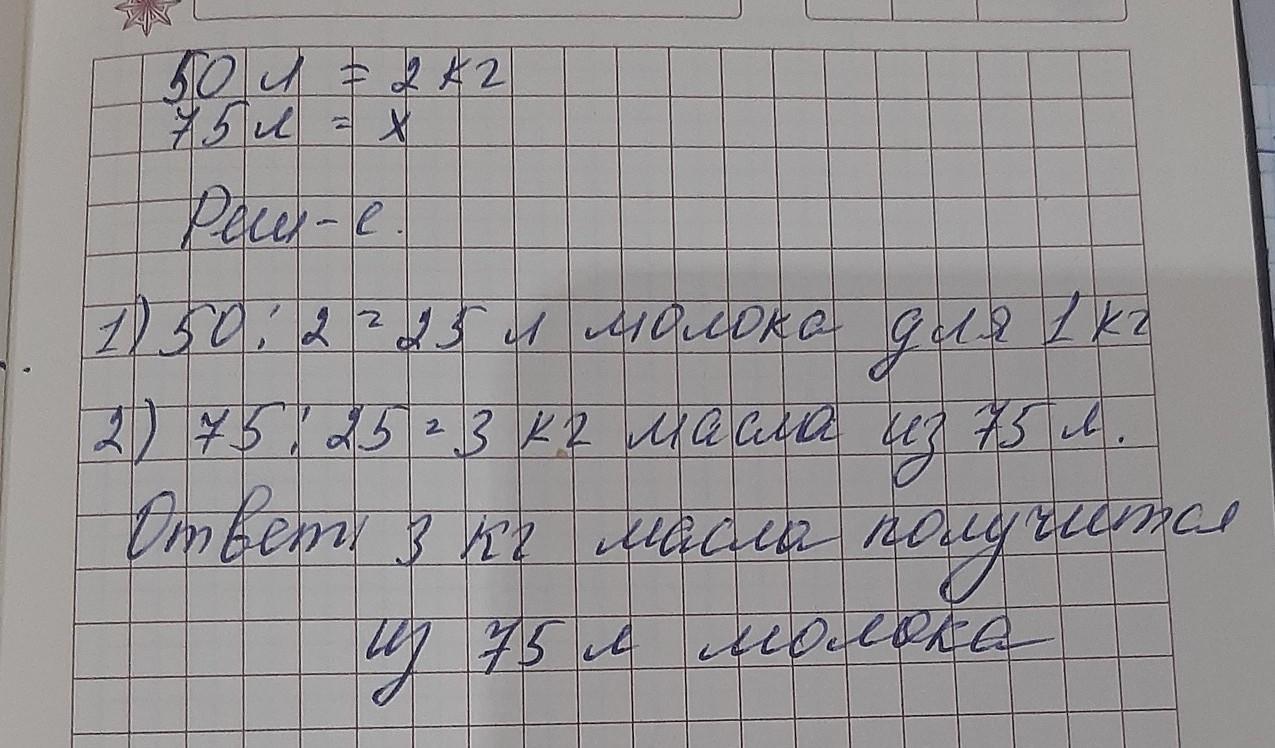 50 л = 2 кг
75 л = х
Реш-е.
1) 50 : 2 = 25 л молока для 1 кг
2) 75 : 25 = 3 кг масла из 75 л.
Ответ: 3 кг масла получится
из 75 л молока